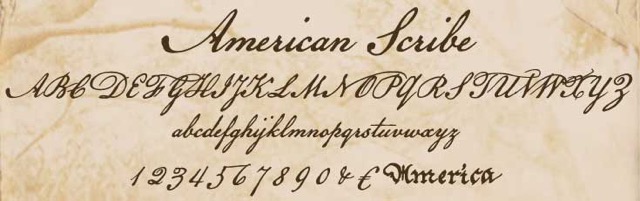 American Scribe
ABCDEFGHIJKLMNOPQRSTUVWXYZ
abcdefghijklmnopqrstuvwxyz
1234567890 & € America